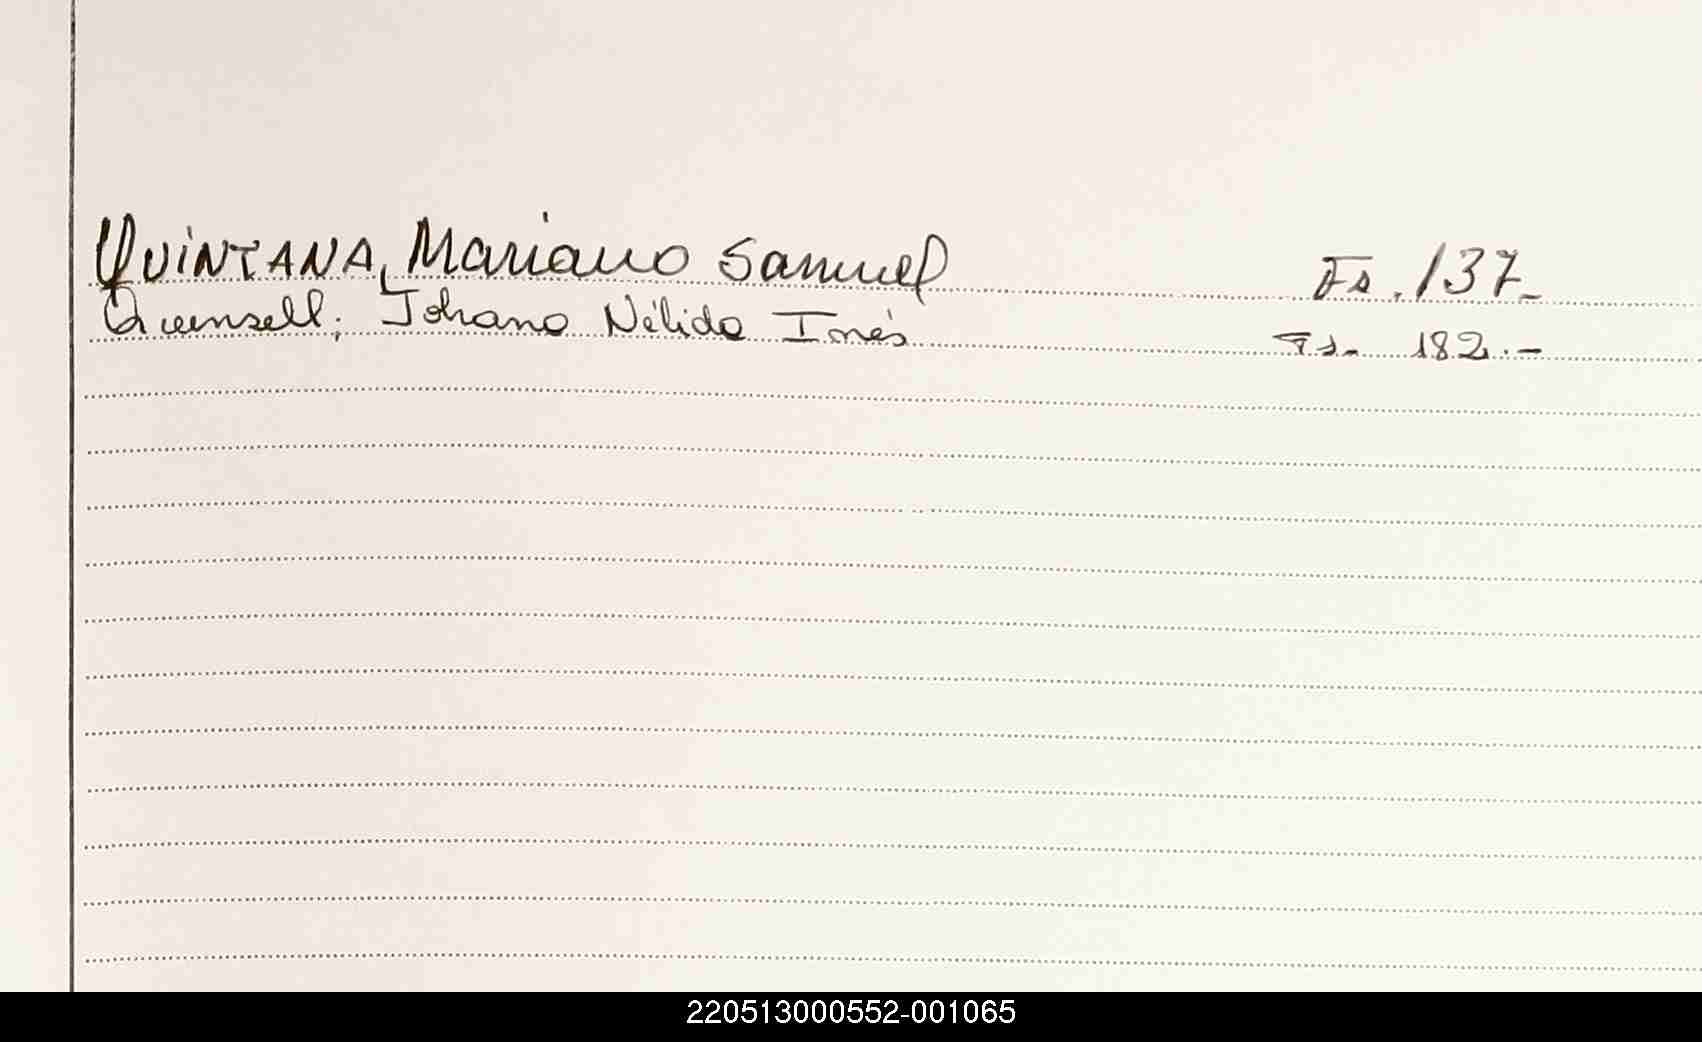 QUINTANA, Mariano Samuel Fs. 137.-
Queensell; Johana Nélida Inés Fs. 182.-
220513000552-001065